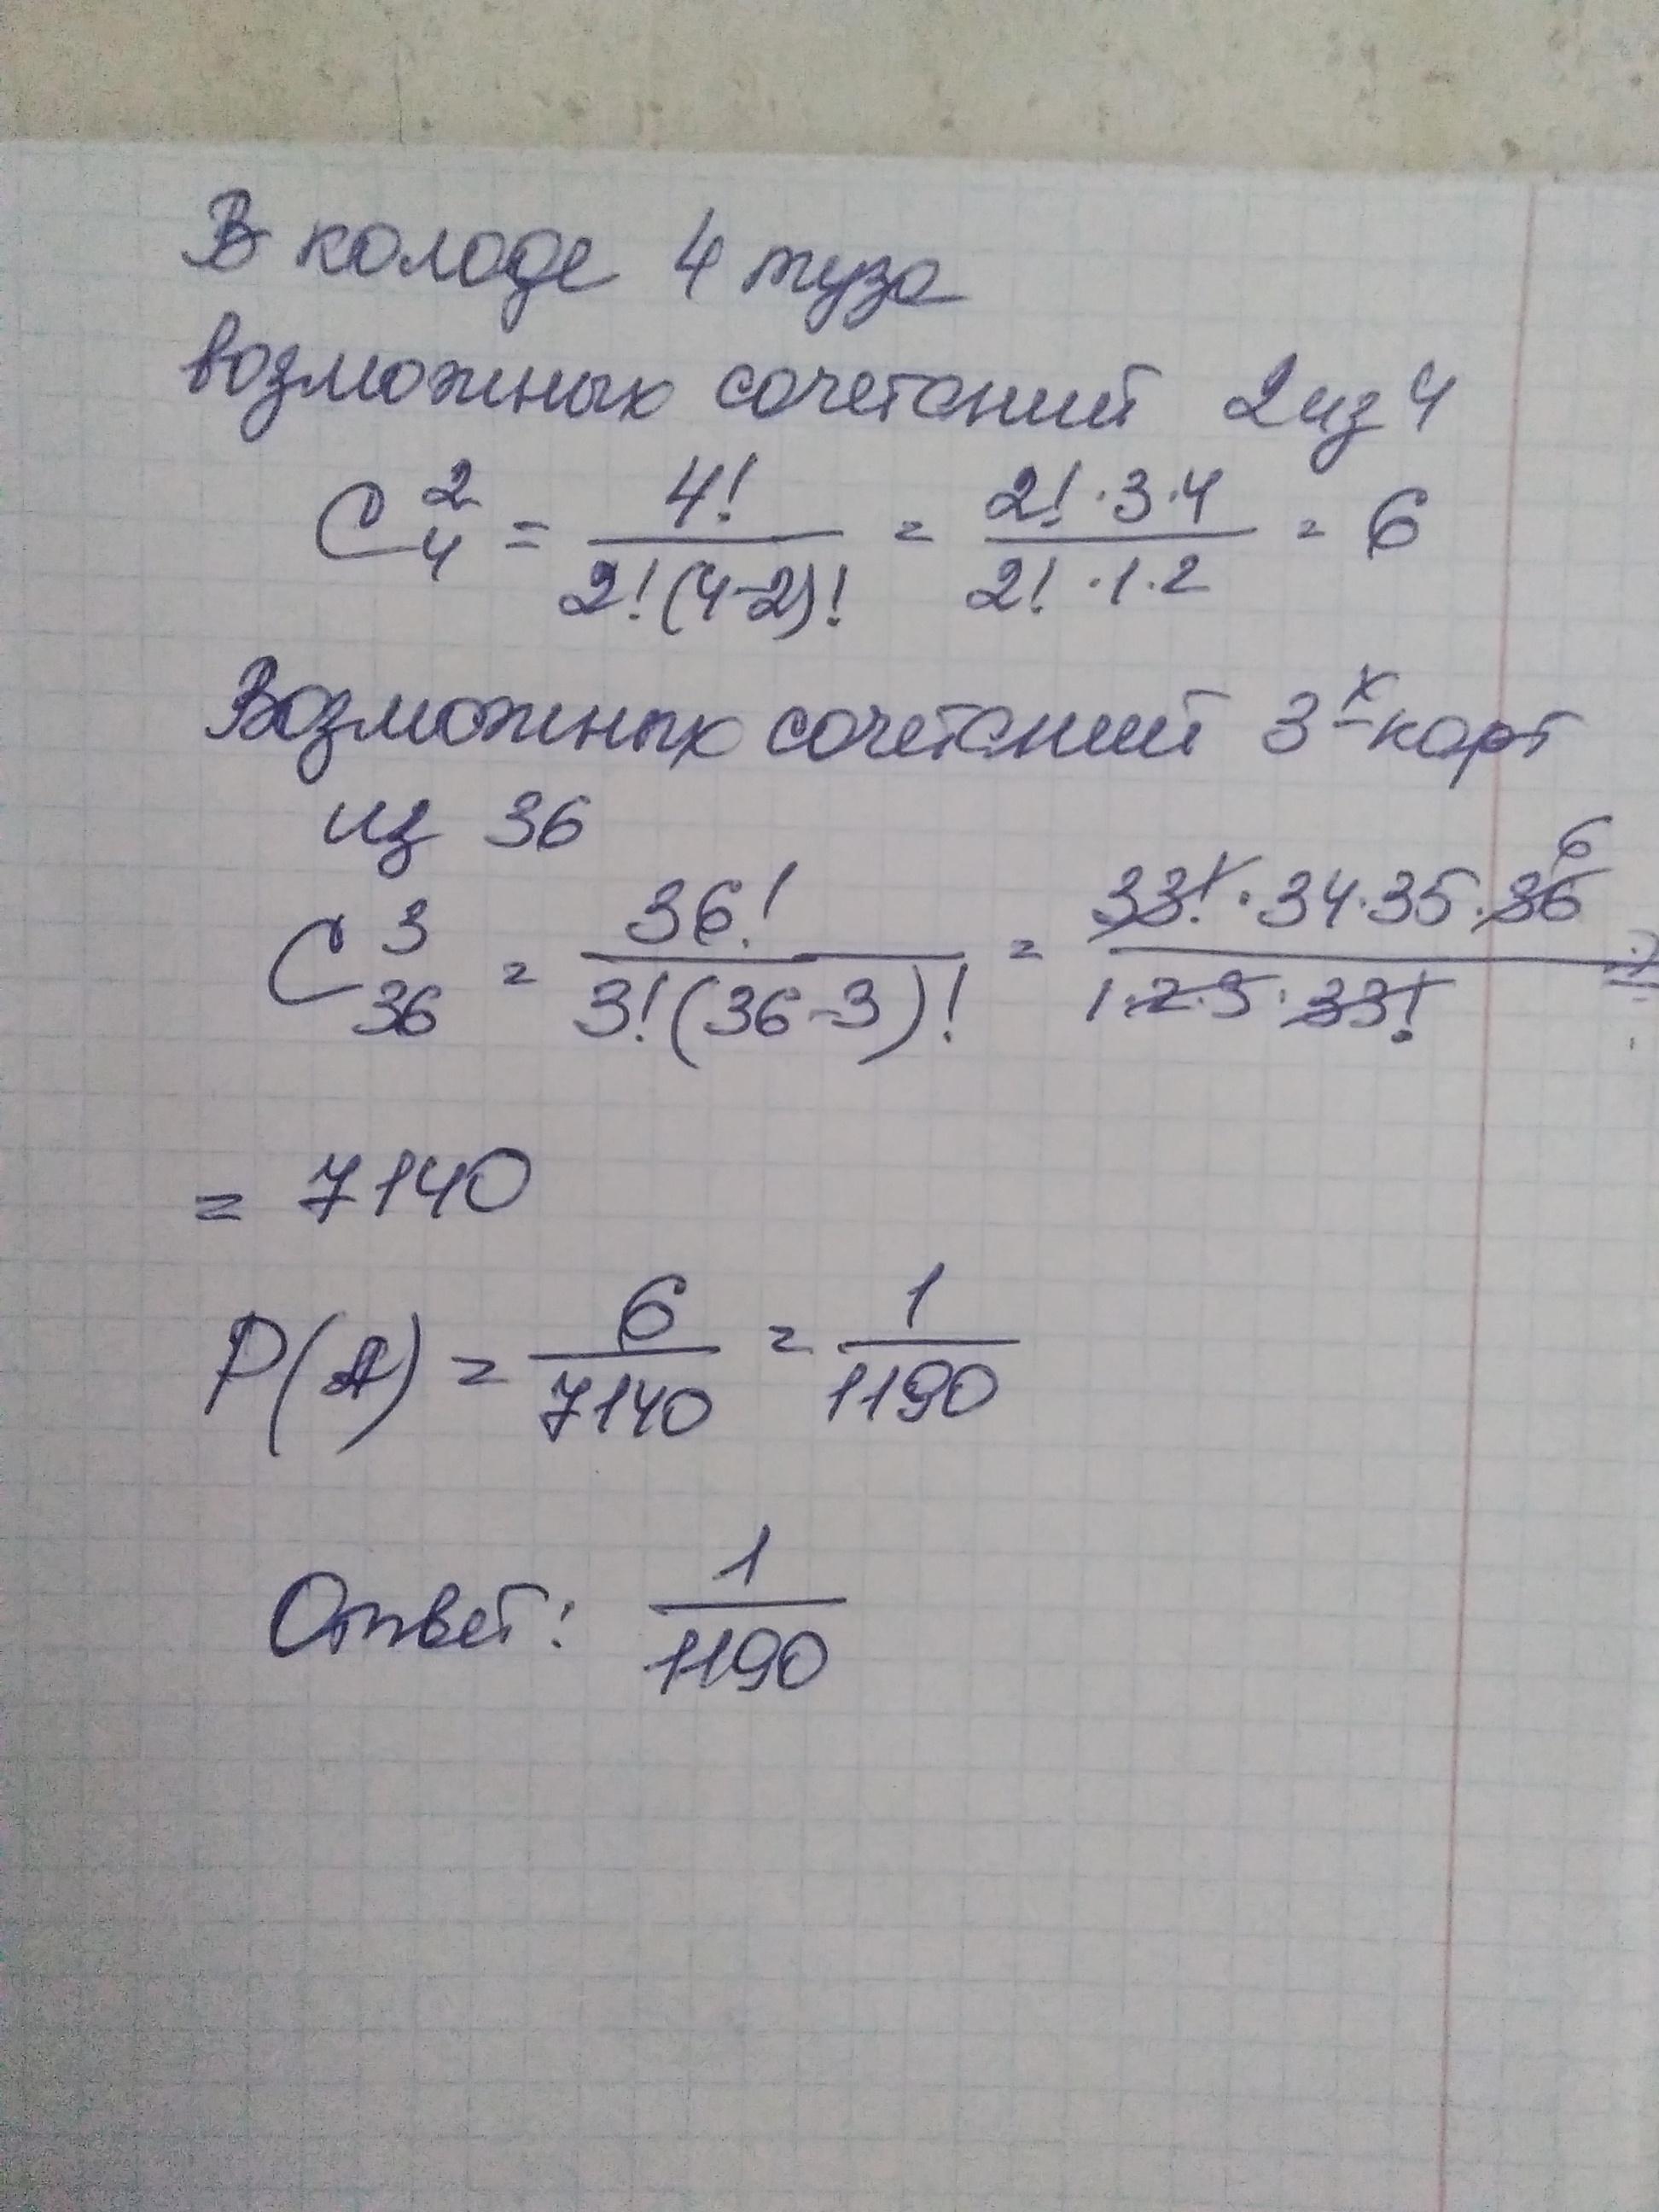 В колоде 4 туза
возможных сочетаний 2 из 4
C₄² = 4! / 2!(4-2)! = 2!·3·4 / 2!·1·2 = 6
Возможных сочетаний 3х карт
из 36
C₃₆³ = 36! / 3!(36-3)! = 33!·34·35·36 6 / 1·2·3·33! =
= 7140
P(A) = 6 / 7140 = 1 / 1190
Ответ: 1 / 1190